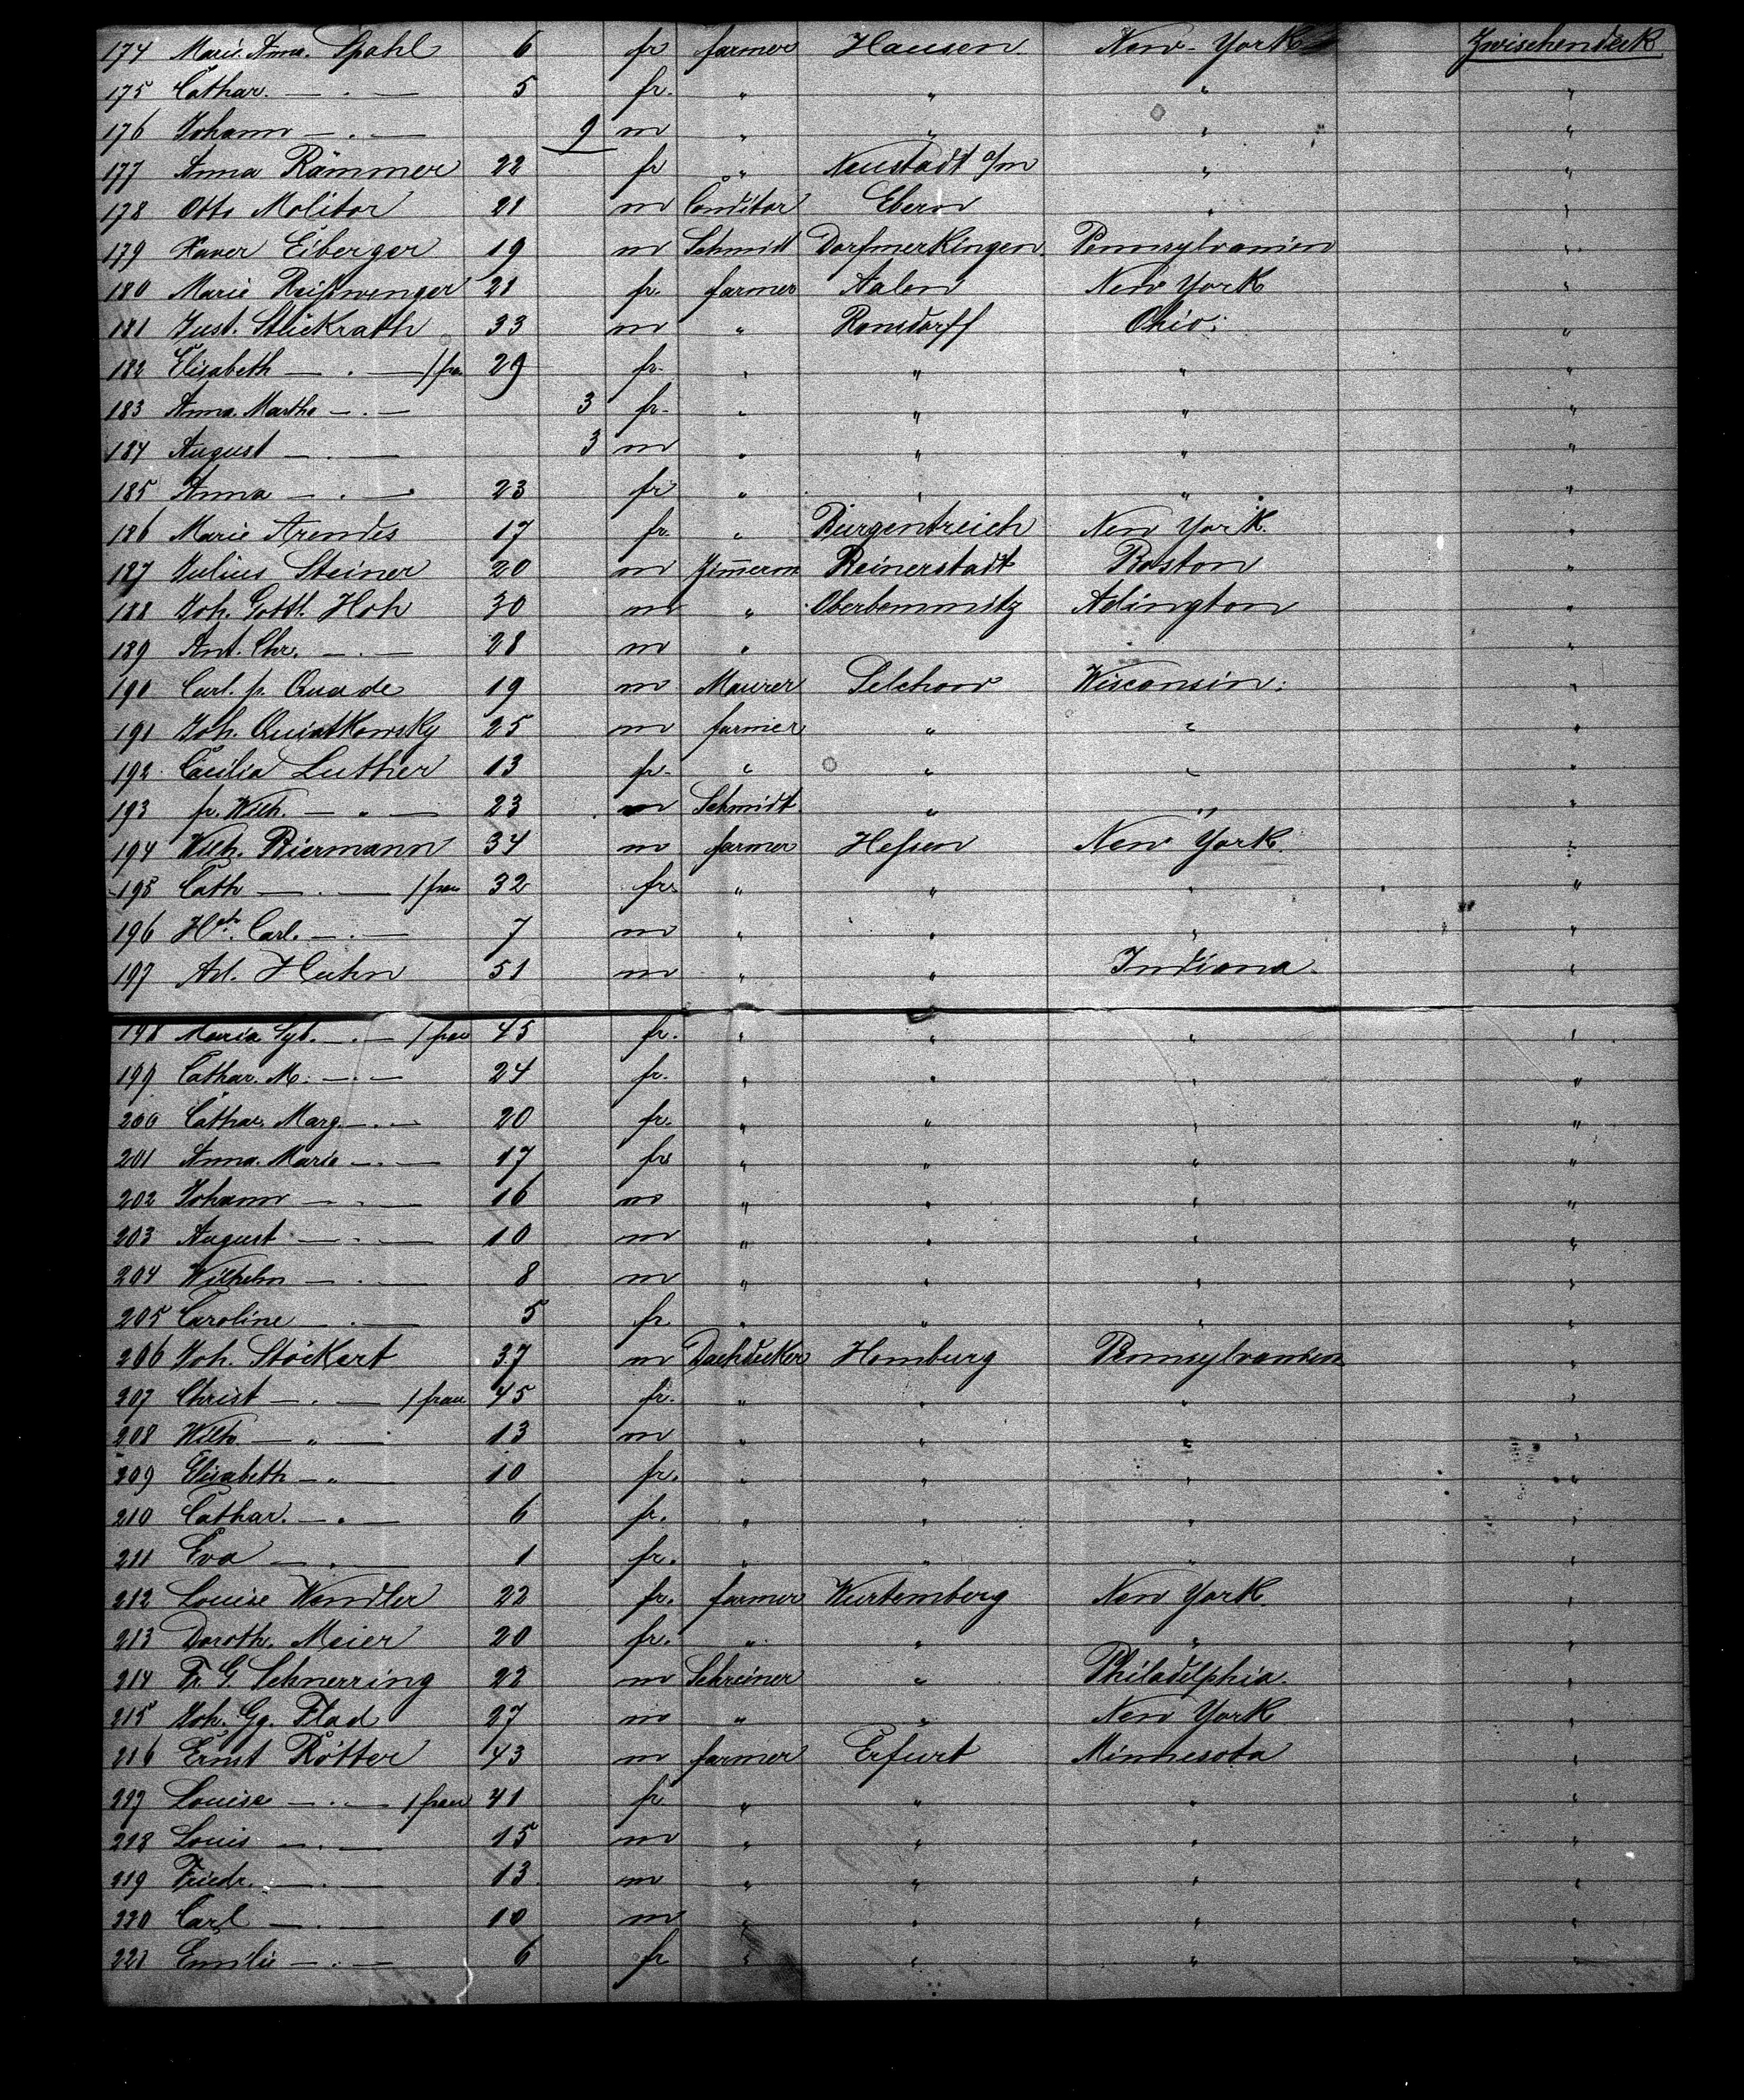 174 Marie Anna. Spahl 6 fr farmer Hausen New-York Zwischendeck
175 Cathar. — . — 5 fr. " " " "
176 Johann — . — 9 m " " " "
177 Anna Rämmer 22 fr " Neustadt a/m " "
178 Otto Molitor 21 m Conditor Ebern " "
179 Xaver Eiberger 19 m Schmidt Dorfmerkingen. Pennsylvanien "
180 Marie Reißwenger 21 fr. farmer Aalen New York "
181 Just. Stückrath 33 m " Ronsdorff Ohio: "
182 Elisabeth — . — /frau 29 fr. " " " "
183 Anna Martha — . — 3 fr. " " " "
184 August — . — 3 m " " " "
185 Anna — . — 23 fr " " " "
186 Marie Arendes 17 fr. " Burgentreich New York. "
187 Julius Steiner 20 m Zim̄erm Reinerstadt Boston "
188 Joh. Gottl. Hoh 30 m " Oberbemmitz Adington "
189 Ant. Chr. — . — 28 m " "
190 Carl. fr. Quade 19 m Maurer Selchow Wisconsin: "
191 Joh. Quiatkowsky 25 m farmer " " "
192 Cäcilia Luther 13 fr. " " " "
193 fr. Wilh. — " — 23 m Schmidt " " "
194 Wilh. Biermann 34 m farmer Heßen New York "
195 Cath — . — /frau 32 fr. " " " "
196 Hch. Carl. — . — 7 m " " " "
197 Ad. Huhn 51 m " " Indiana. "
198 Maria Syb. — . — /frau 45 fr. " " " "
199 Cathar. M. — . — 24 fr. " " " "
200 Cathar. Marg. — . — 20 fr. " " " "
201 Anna. Marie — . — 17 fr " " " "
202 Johann — . — 16 m " " " "
203 August — . — 10 m " " " "
204 Wilhelm — . — 8 m " " " "
205 Caroline — . — 5 fr. " " " "
206 Joh. Stöckert 37 m Dachdecker Homburg Pennsylvanien "
207 Christ — . — /frau 45 fr. " " " "
208 Wilh. — " — 13 m " " " "
209 Elisabeth — " — 10 fr. " " " "
210 Cathar. — . — 6 fr. " " " "
211 Eva — . — 1 fr. " " " "
212 Louise Wendler 22 fr. farmer Wurtemberg New York. "
213 Doroth. Meier 20 fr. " " " "
214 Fr. G. Schnerring 22 m Schreiner " Philadelphia. "
215 Joh. Gg. Flad 27 m " " New York "
216 Ernst Rötter 43 m farmer Erfurt Minnesota "
217 Louise — . — /frau 41 fr " " " "
218 Louis — . — 15 m " " " "
219 Friedr. — . — 13 m " " " "
220 Carl — . — 10 m " " " "
221 Emilie — . — 6 fr " " " "